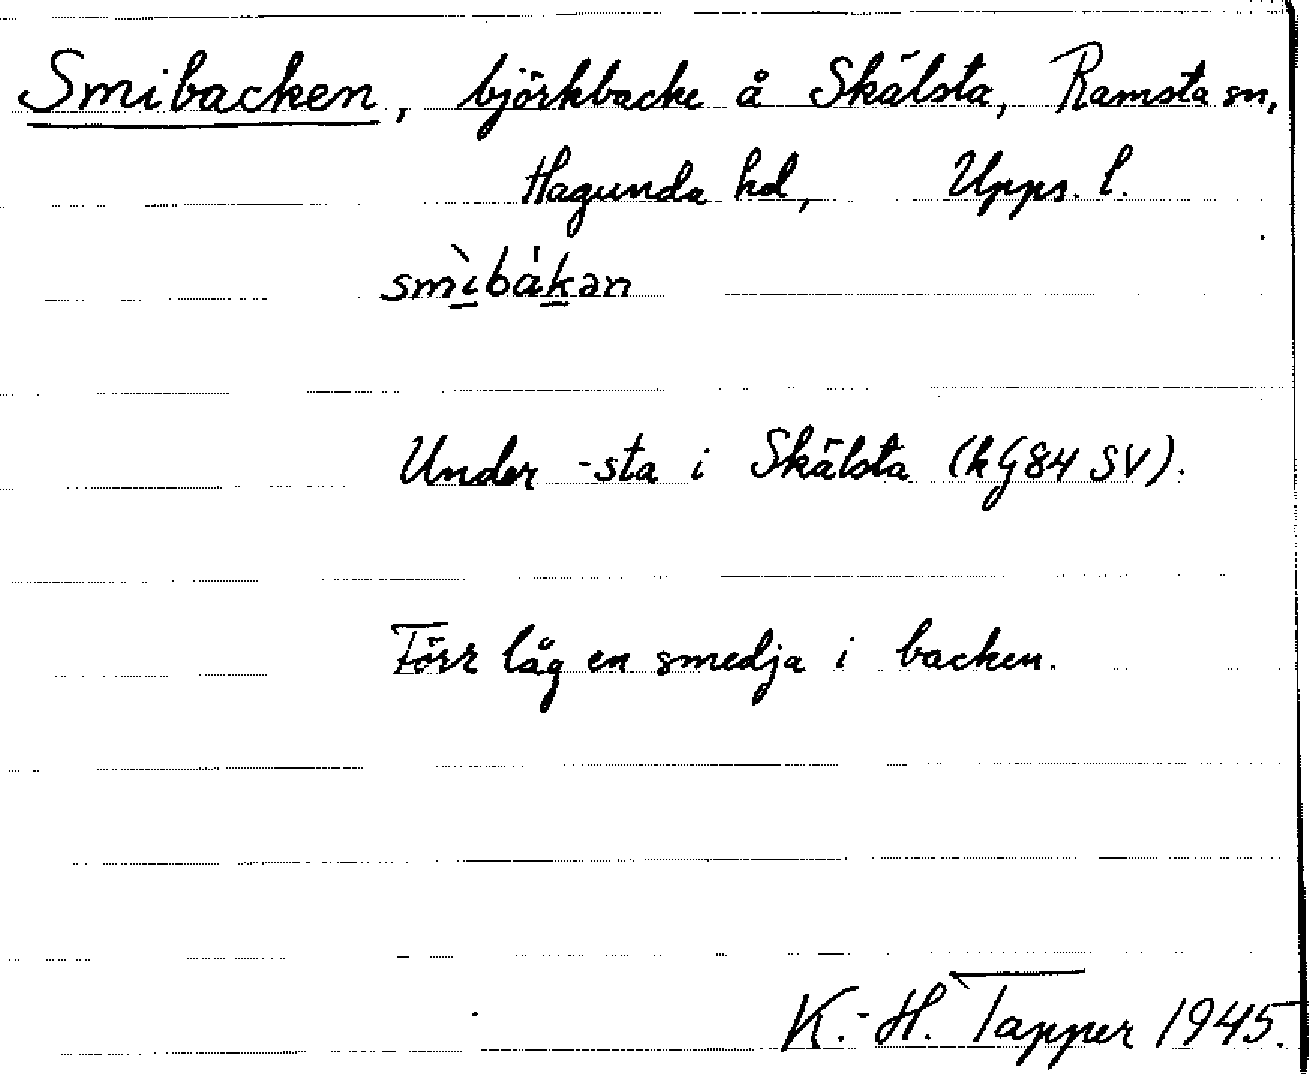 Smibacken, björkbacke å Skälsta, Ramsta sn,
Hagunda hd, Upps. l.
smìbákan
Under -sta i Skälsta (kG84 SV).
Förr låg en smedja i backen.
K.-H. Tapper 1945.